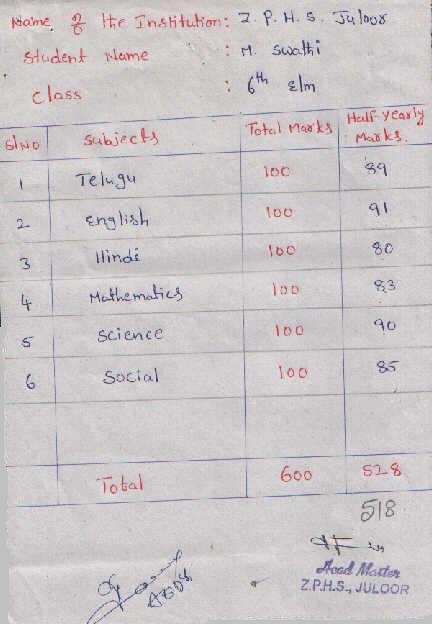 Name of the Institution: Z. P. H. S. Juloor
Student Name : M. Swathi
Class : 6th E/m
Sl No Subjects Total Marks Half-Yearly Marks.
1 Telugu 100 89
2 English 100 91
3 Hindi 100 80
4 Mathematics 100 83
5 Science 100 90
6 Social 100 85
Total 600 528
518
Head Master
Z.P.H.S., JULOOR